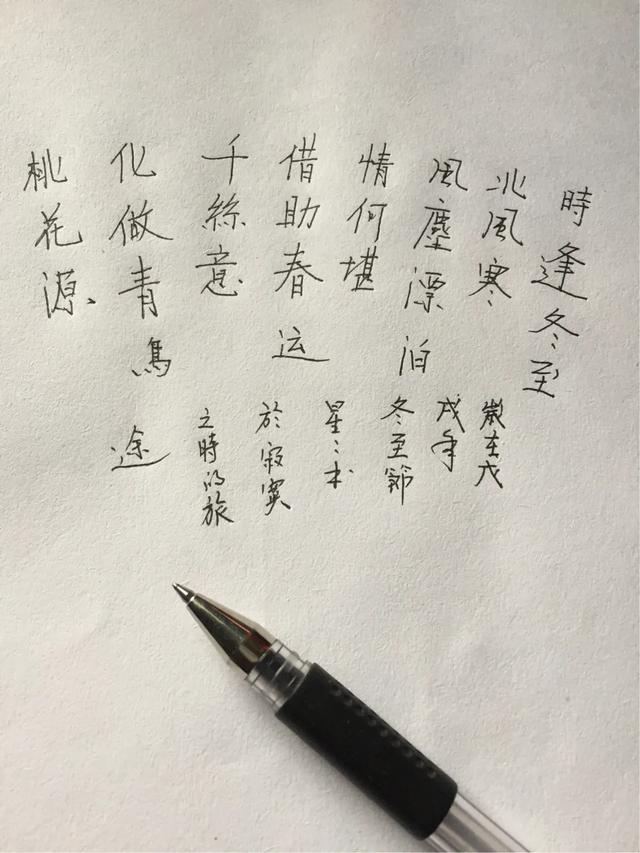 時逢冬至
北風寒
風塵漂泊
情何堪
借助春运
千絲意
化做青鳥
桃花源、
歲在戊
戌年
冬至節
星々书
於寂寞
之時的旅
途